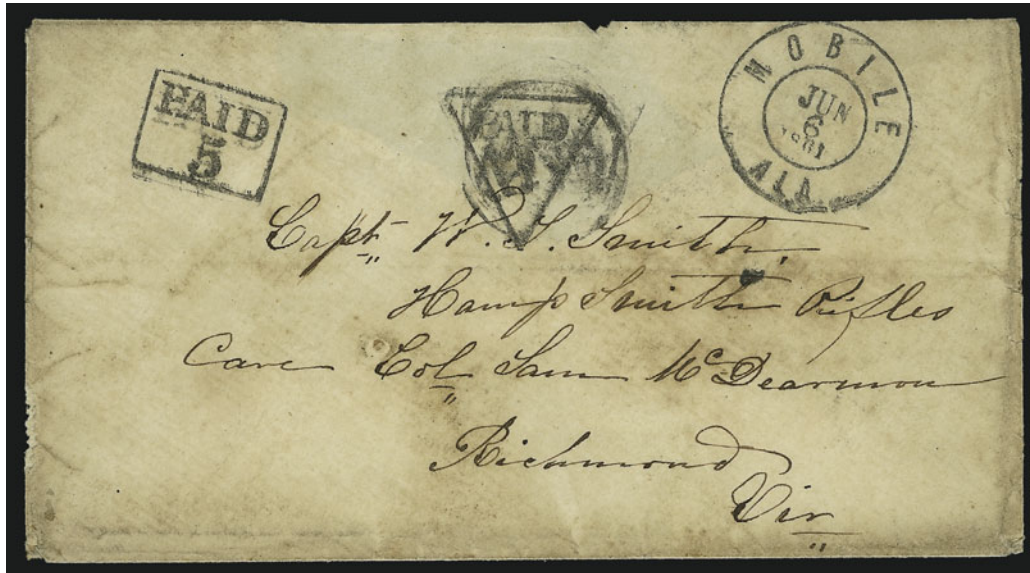 PAID
5
PAID
MOBILE
JUN
6
1861
ALA
Capt. W. T. Smith,
Hamp Smith Rifles
Care Col. Sam McDearmon
Richmond
Vir